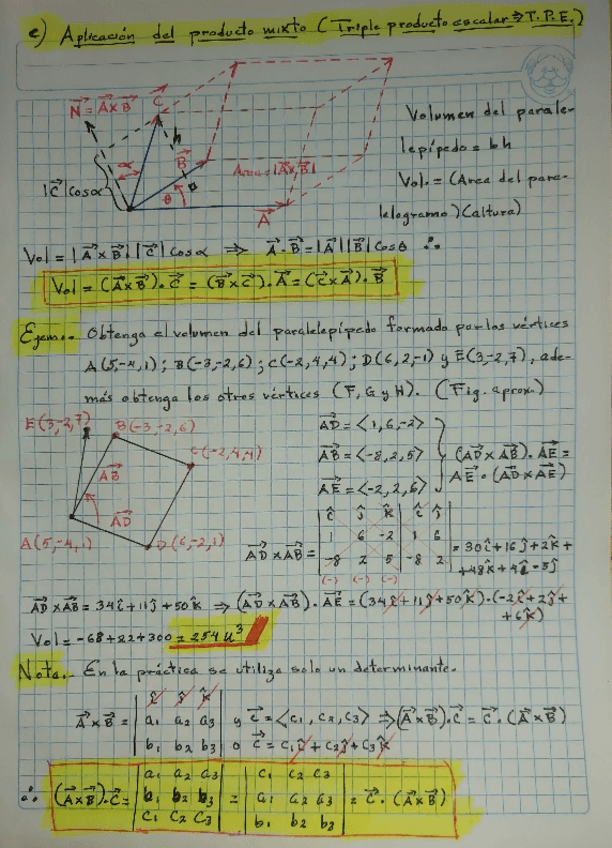 e) Aplicación del producto mixto (Triple producto escalar ⇒ T.P.E.)
N⃗ = A⃗ x B⃗
C⃗
h
α
B⃗
Area = |A⃗ x B⃗|
|C⃗| cos α
θ
A⃗
Volumen del parale-
lepípedo = bh
Vol. = (Area del para-
lelogramo) (altura)
Vol = |A⃗ x B⃗| |C⃗| cos α ⇒ A⃗ · B⃗ = |A⃗| |B⃗| cos θ ∴
Vol = (A⃗ x B⃗) · C⃗ = (B⃗ x C⃗) · A⃗ = (C⃗ x A⃗) · B⃗
Ejem.- Obtenga el volumen del paralelepípedo formado por los vértices
A(5,-4,1); B(-3,-2,6); C(-2,4,4); D(6,2,-1) y E(3,-2,7), ade-
más obtenga los otros vértices (F, G y H). (Fig. aprox.)
E(3,-2,7)
B(-3,-2,6)
C(-2,4,4)
AB⃗
AD⃗
A(5,-4,1)
D(6,-2,1)
AD⃗ = <1,6,-2>
AB⃗ = <-8,2,5>
AE⃗ = <-2,2,6>
(AD⃗ x AB⃗) · AE⃗ =
AE⃗ · (AD⃗ x AE⃗)
î ĵ k̂ | î ĵ
1 6 -2 | 1 6
AD⃗ x AB⃗ = -8 2 5 | -8 2
(-) (-) (-)
= 30î + 16ĵ + 2k̂ +
+ 48k̂ + 4î - 5ĵ
AD⃗ x AB⃗ = 34î + 11ĵ + 50k̂ ⇒ (AD⃗ x AB⃗) · AE⃗ = (34î + 11ĵ + 50k̂) · (-2î + 2ĵ +
+ 6k̂)
Vol = -68 + 22 + 300 = 254 u³
Nota.- En la práctica se utiliza solo un determinante.
î ĵ k̂
A⃗ x B⃗ = | a₁ a₂ a₃ | y C⃗ = <c₁, c₂, c₃> ⇒ (A⃗ x B⃗) · C⃗ = C⃗ · (A⃗ x B⃗)
b₁ b₂ b₃ | o C⃗ = c₁î + c₂ĵ + c₃k̂
a₁ a₂ a₃ | c₁ c₂ c₃
∴ (A⃗ x B⃗) · C⃗ = | b₁ b₂ b₃ | = | a₁ a₂ a₃ | = C⃗ · (A⃗ x B⃗)
c₁ c₂ c₃ | b₁ b₂ b₃